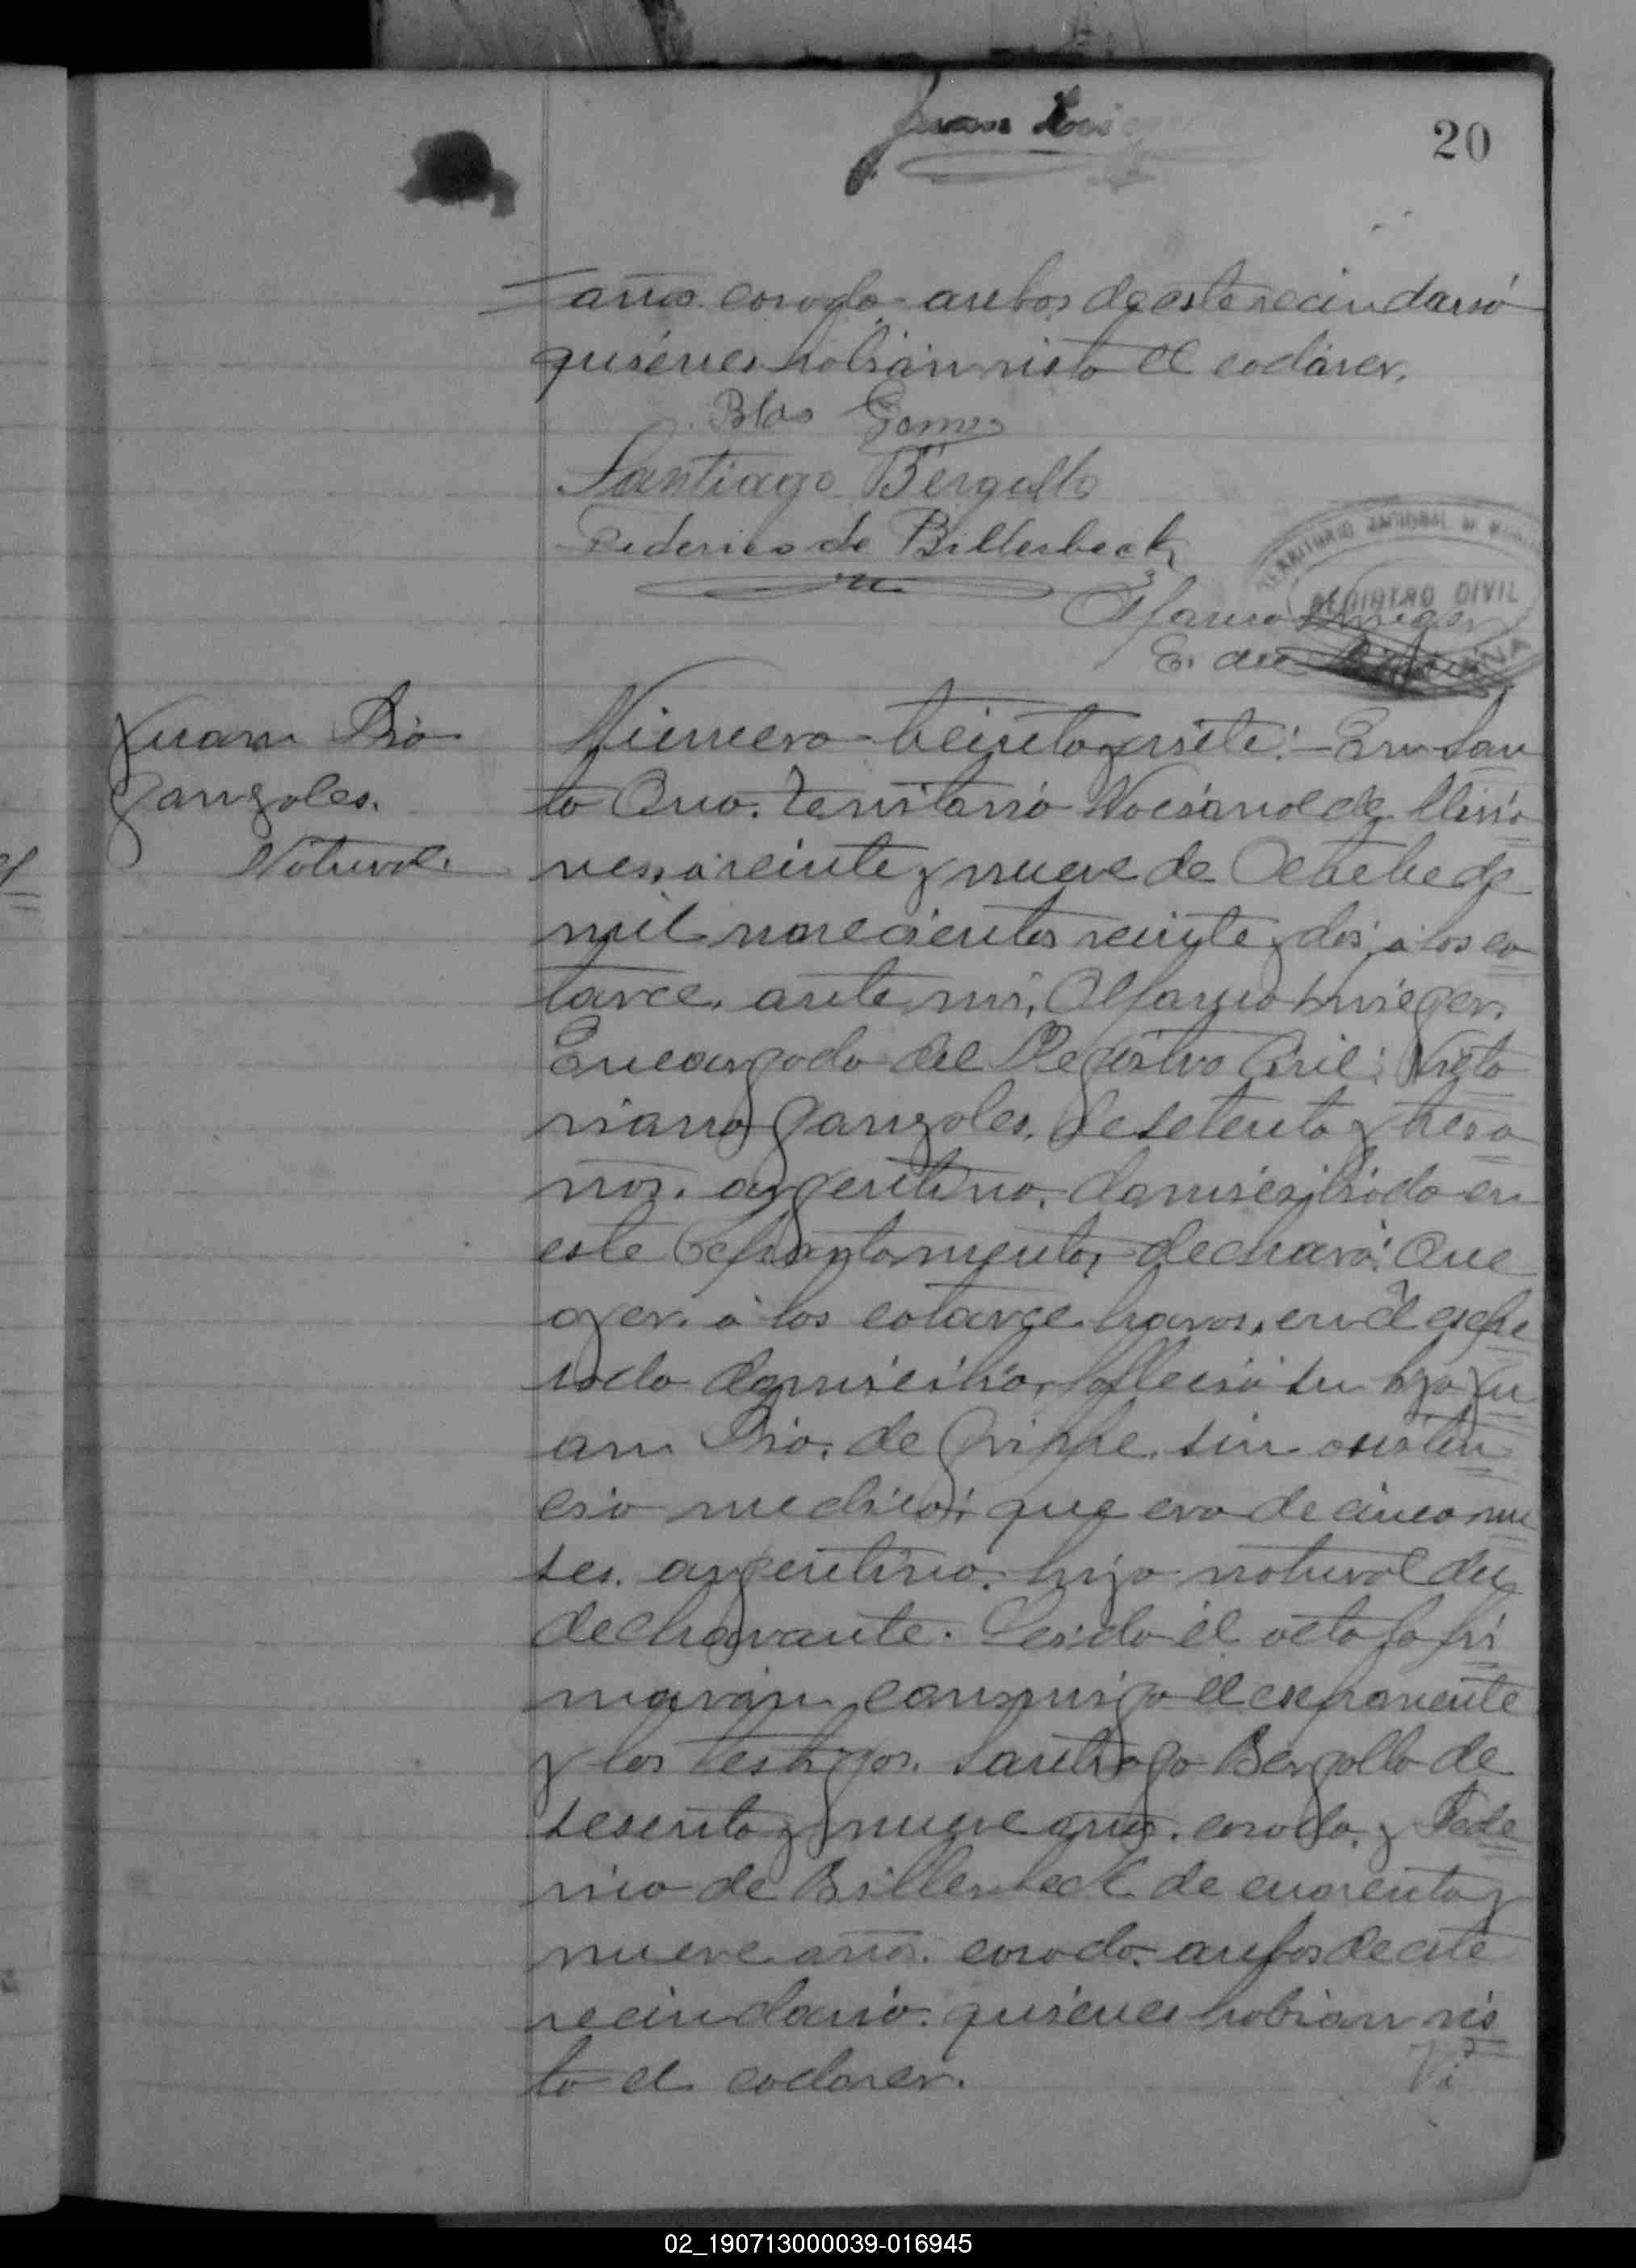 Juan Luis
20
años casado ambos de este vecindario
quiénes habian visto el cadáver.
Blas Gomez
Santiago Bergallo
Federico de Billerbeck
TERRITORIO NACIONAL DE MISIONES
REGISTRO CIVIL
E. del
Juan Pio
Gonzales.
Natural.
Número treinta y siete: En San
ta Ana. Territorio Nacional de Misio
nes, a veinte y nueve de Octubre de
mil novecientos veinte y dos, a las ca
torce, ante mi,
Encargado del Registro Civil: Victo
riano Gonzales, de setenta y tres a
ños, argentino, domiciliado en
este Departamento, declaró: Que
ayer, á las catorce horas, en el expre
sado domicilio, falleció su hijo Ju
an Pio, de Grippe, sin asisten
cia medica; que era de cinco me
ses, argentino, hijo natural del
declarante. Leida el acta la fir
marán conmigo el exponente
y los testigos, Santiago Bergallo de
sesenta y nueve años, casado, y Fede
rico de Billerbeck de cuarenta y
nueve años, casado, ambos de este
vecindario, quiénes habian vis
to el cadaver.
Vi
02_190713000039-016945